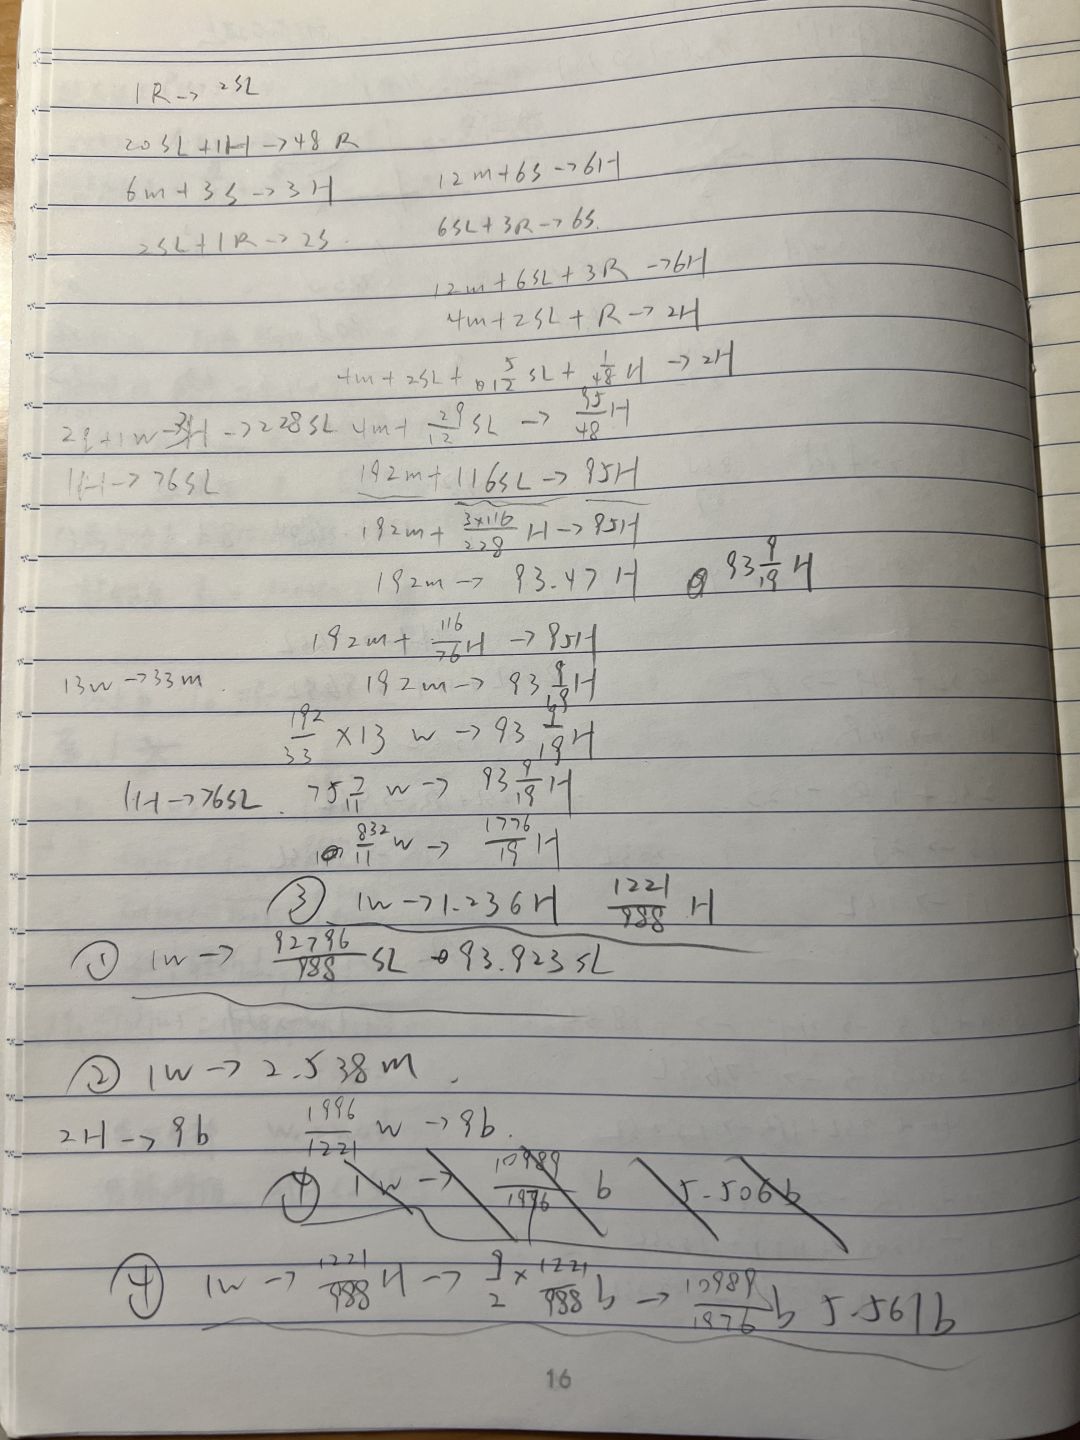 1R → 2SL
20SL + 1H → 48R
6m + 3S → 3H    12m + 6S → 6H
2SL + 1R → 2S.    6SL + 3R → 6S.
12m + 6SL + 3R → 6H
4m + 2SL + R → 2H
4m + 2SL + 5/12 SL + 1/48 H → 2H
→ 228SL    4m + 29/12 SL → 95/48 H
1H → 76SL    192m + 116SL → 95H
192m + 3×116/228 H → 95H
192m → 93.47H    93 9/19 H
192m + 116/76 H → 95H
13w → 33m.    192m → 93 9/19 H
192/33 × 13 w → 93 9/19 H
1H → 76SL.    75 7/11 w → 93 9/19 H
832/11 w → 1776/19 H
③ 1w → 1.236H    1221/988 H
① 1w → 92796/988 SL    93.923SL
② 1w → 2.538m.
2H → 9b    1996/1221 w → 9b.
④ 1w → 10989/1976 b    5.506b
④ 1w → 1221/988 H → 9/2 × 1221/988 b → 10989/1976 b    5.561b
16